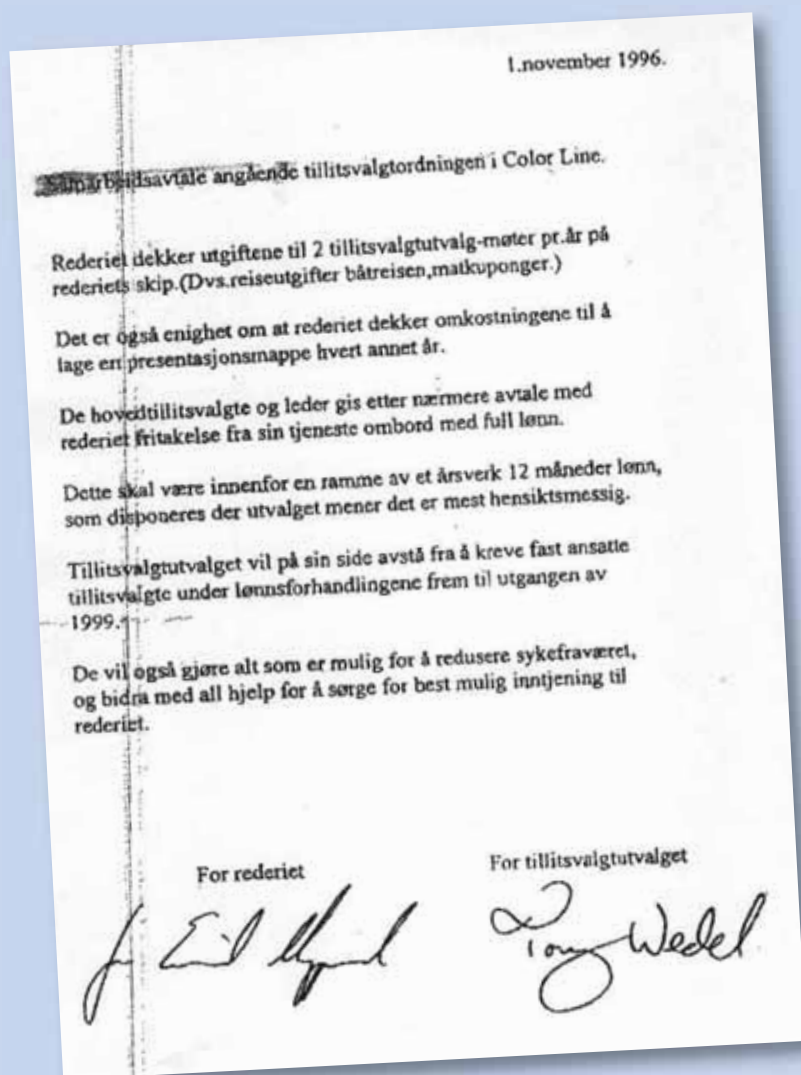 1.november 1996.
Samarbeidsavtale angående tillitsvalgtordningen i Color Line.
Rederiet dekker utgiftene til 2 tillitsvalgtutvalg-møter pr.år på
rederiets skip.(Dvs.reiseutgifter båtreisen,matkuponger.)
Det er også enighet om at rederiet dekker omkostningene til å
lage en presentasjonsmappe hvert annet år.
De hovedtillitsvalgte og leder gis etter nærmere avtale med
rederiet fritakelse fra sin tjeneste ombord med full lønn.
Dette skal være innenfor en ramme av et årsverk 12 måneder lønn,
som disponeres der utvalget mener det er mest hensiktsmessig.
Tillitsvalgtutvalget vil på sin side avstå fra å kreve fast ansatte
tillitsvalgte under lønnsforhandlingene frem til utgangen av
1999.
De vil også gjøre alt som er mulig for å redusere sykefraværet,
og bidra med all hjelp for å sørge for best mulig inntjening til
rederiet.
For rederiet
For tillitsvalgtutvalget
Tony Wedel